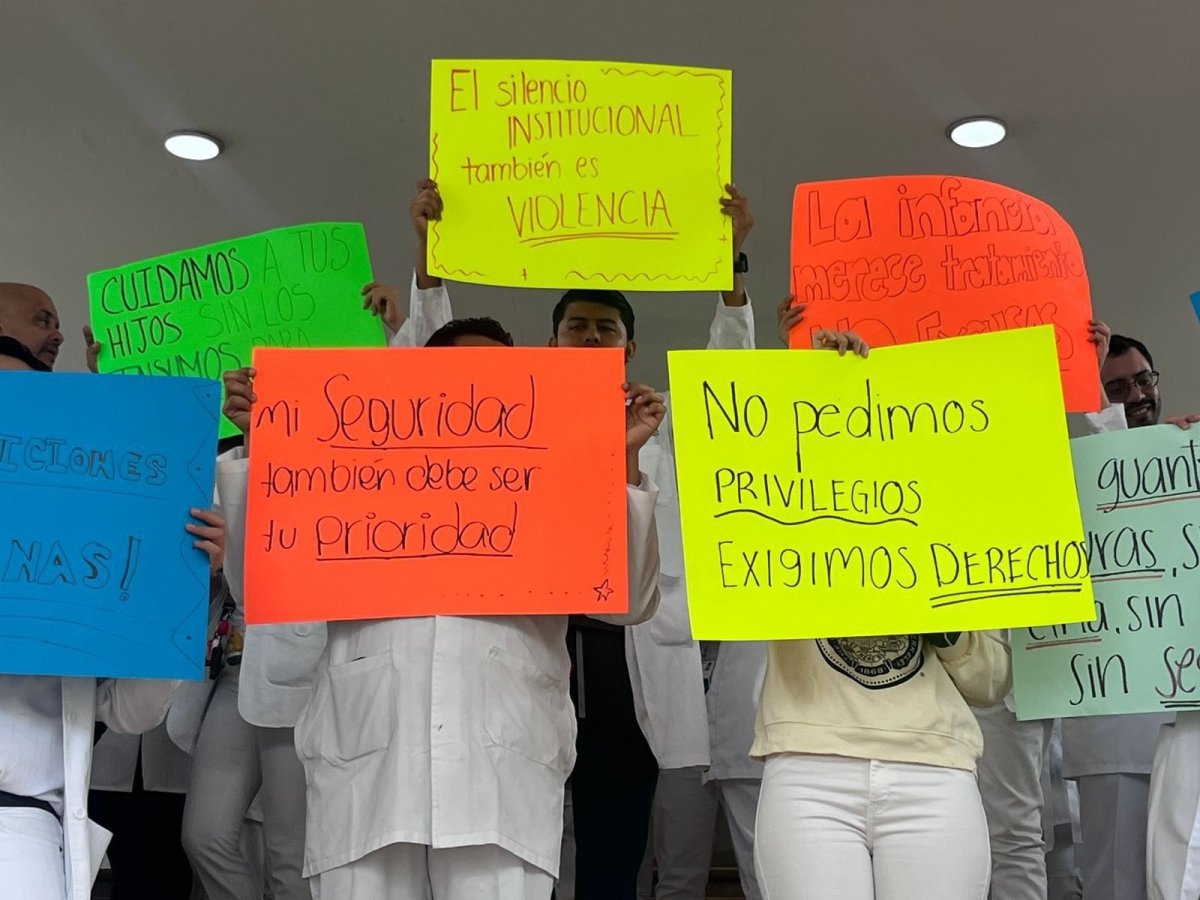 El silencio
INSTITUCIONAL
también es
VIOLENCIA
CUIDAMOS A TUS
HIJOS SIN LOS
INSUMOS PARA
La infancia
merece tratamiento
no Excusas
ICIONES
NAS!
mi Seguridad
también debe ser
tu prioridad
No pedimos
PRIVILEGIOS
EXIGIMOS DERECHOS
guant
uras, s
sin
sin se
1868